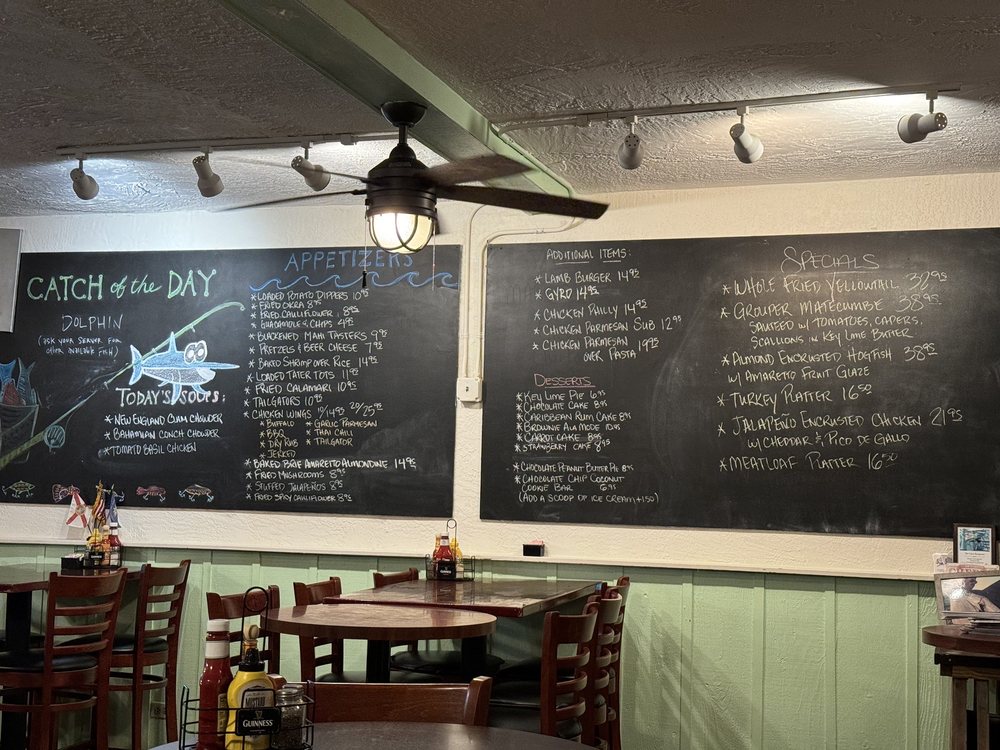 CATCH of the DAY
DOLPHIN
(ASK YOUR SERVER FOR
OTHER AVAILABLE FISH)
TODAY'S SOUPS:
* NEW ENGLAND CLAM CHOWDER
* BAHAMIAN CONCH CHOWDER
* TOMATO BASIL CHICKEN
APPETIZERS
* LOADED POTATO DIPPERS 10.95
* FRIED OKRA 8.95
* FRIED CAULIFLOWER 8.95
* GUACAMOLE & CHIPS 4.95
* BLACKENED MAHI TASTERS 9.95
* PRETZELS & BEER CHEESE 7.95
* BAKED SHRIMP OVER RICE 14.95
* LOADED TATER TOTS 11.95
* FRIED CALAMARI 10.95
* TAILGATORS 10.95
* CHICKEN WINGS 10/14.95 20/25.95
* BUFFALO * GARLIC PARMESAN
* BBQ * THAI CHILI
* DRY RUB * TAILGATOR
* JERKED
* BAKED BRIE AMARETTO ALMONDINE 14.95
* FRIED MUSHROOMS 8.95
* STUFFED JALAPEÑOS 8.95
* FRIED SPICY CAULIFLOWER 8.95
ADDITIONAL ITEMS:
* LAMB BURGER 14.95
* GYRO 14.95
* CHICKEN PHILLY 14.95
* CHICKEN PARMESAN SUB 12.95
* CHICKEN PARMESAN 19.95
OVER PASTA
DESSERTS
* KEY LIME PIE 6.95
* CHOCOLATE CAKE 8.95
* CARIBBEAN RUM CAKE 8.95
* BROWNIE ALA MODE 10.95
* CARROT CAKE 8.95
* STRAWBERRY CAKE 8.95
* CHOCOLATE PEANUT BUTTER PIE 8.95
* CHOCOLATE CHIP COCONUT
COOKIE BAR 6.95
(ADD A SCOOP OF ICE CREAM +1.50)
SPECIALS
* WHOLE FRIED YELLOWTAIL 38.95
* GROUPER MATECUMBE 38.95
SAUTEED W/ TOMATOES, CAPERS,
SCALLIONS IN KEY LIME BUTTER
* ALMOND ENCRUSTED HOGFISH 38.95
W/ AMARETTO FRUIT GLAZE
* TURKEY PLATTER 16.50
* JALAPEÑO ENCRUSTED CHICKEN 21.95
W/ CHEDDAR & PICO DE GALLO
* MEATLOAF PLATTER 16.50
GUINNESS